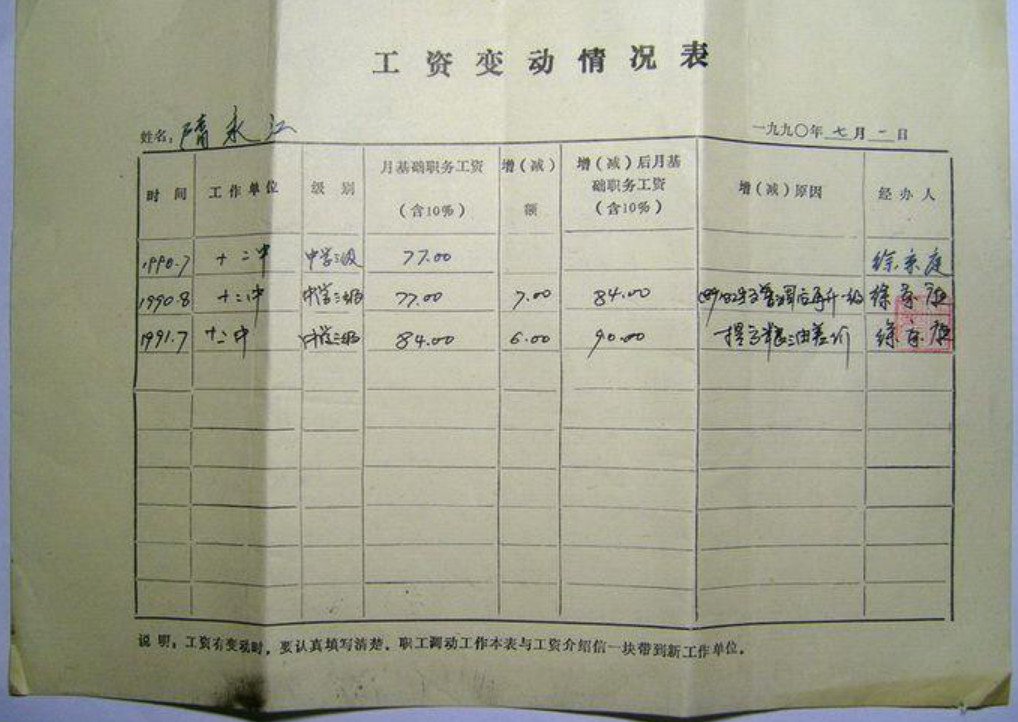 工资变动情况表
姓名：隋永江 一九九〇年七月一日
时间 工作单位 级别 月基础职务工资（含10%） 增（减）额 增（减）后月基础职务工资（含10%） 增（减）原因 经办人
1990.7 十二中 中学三级 77.00 徐京庭
1990.8 十二中 中学三级 77.00 7.00 84.00 后再升一级 徐京庭
1991.7 十二中 中学三级 84.00 6.00 90.00 提高粮油差价 徐京庭
说明：工资有变动时，要认真填写清楚。职工调动工作本表与工资介绍信一块带到新工作单位。